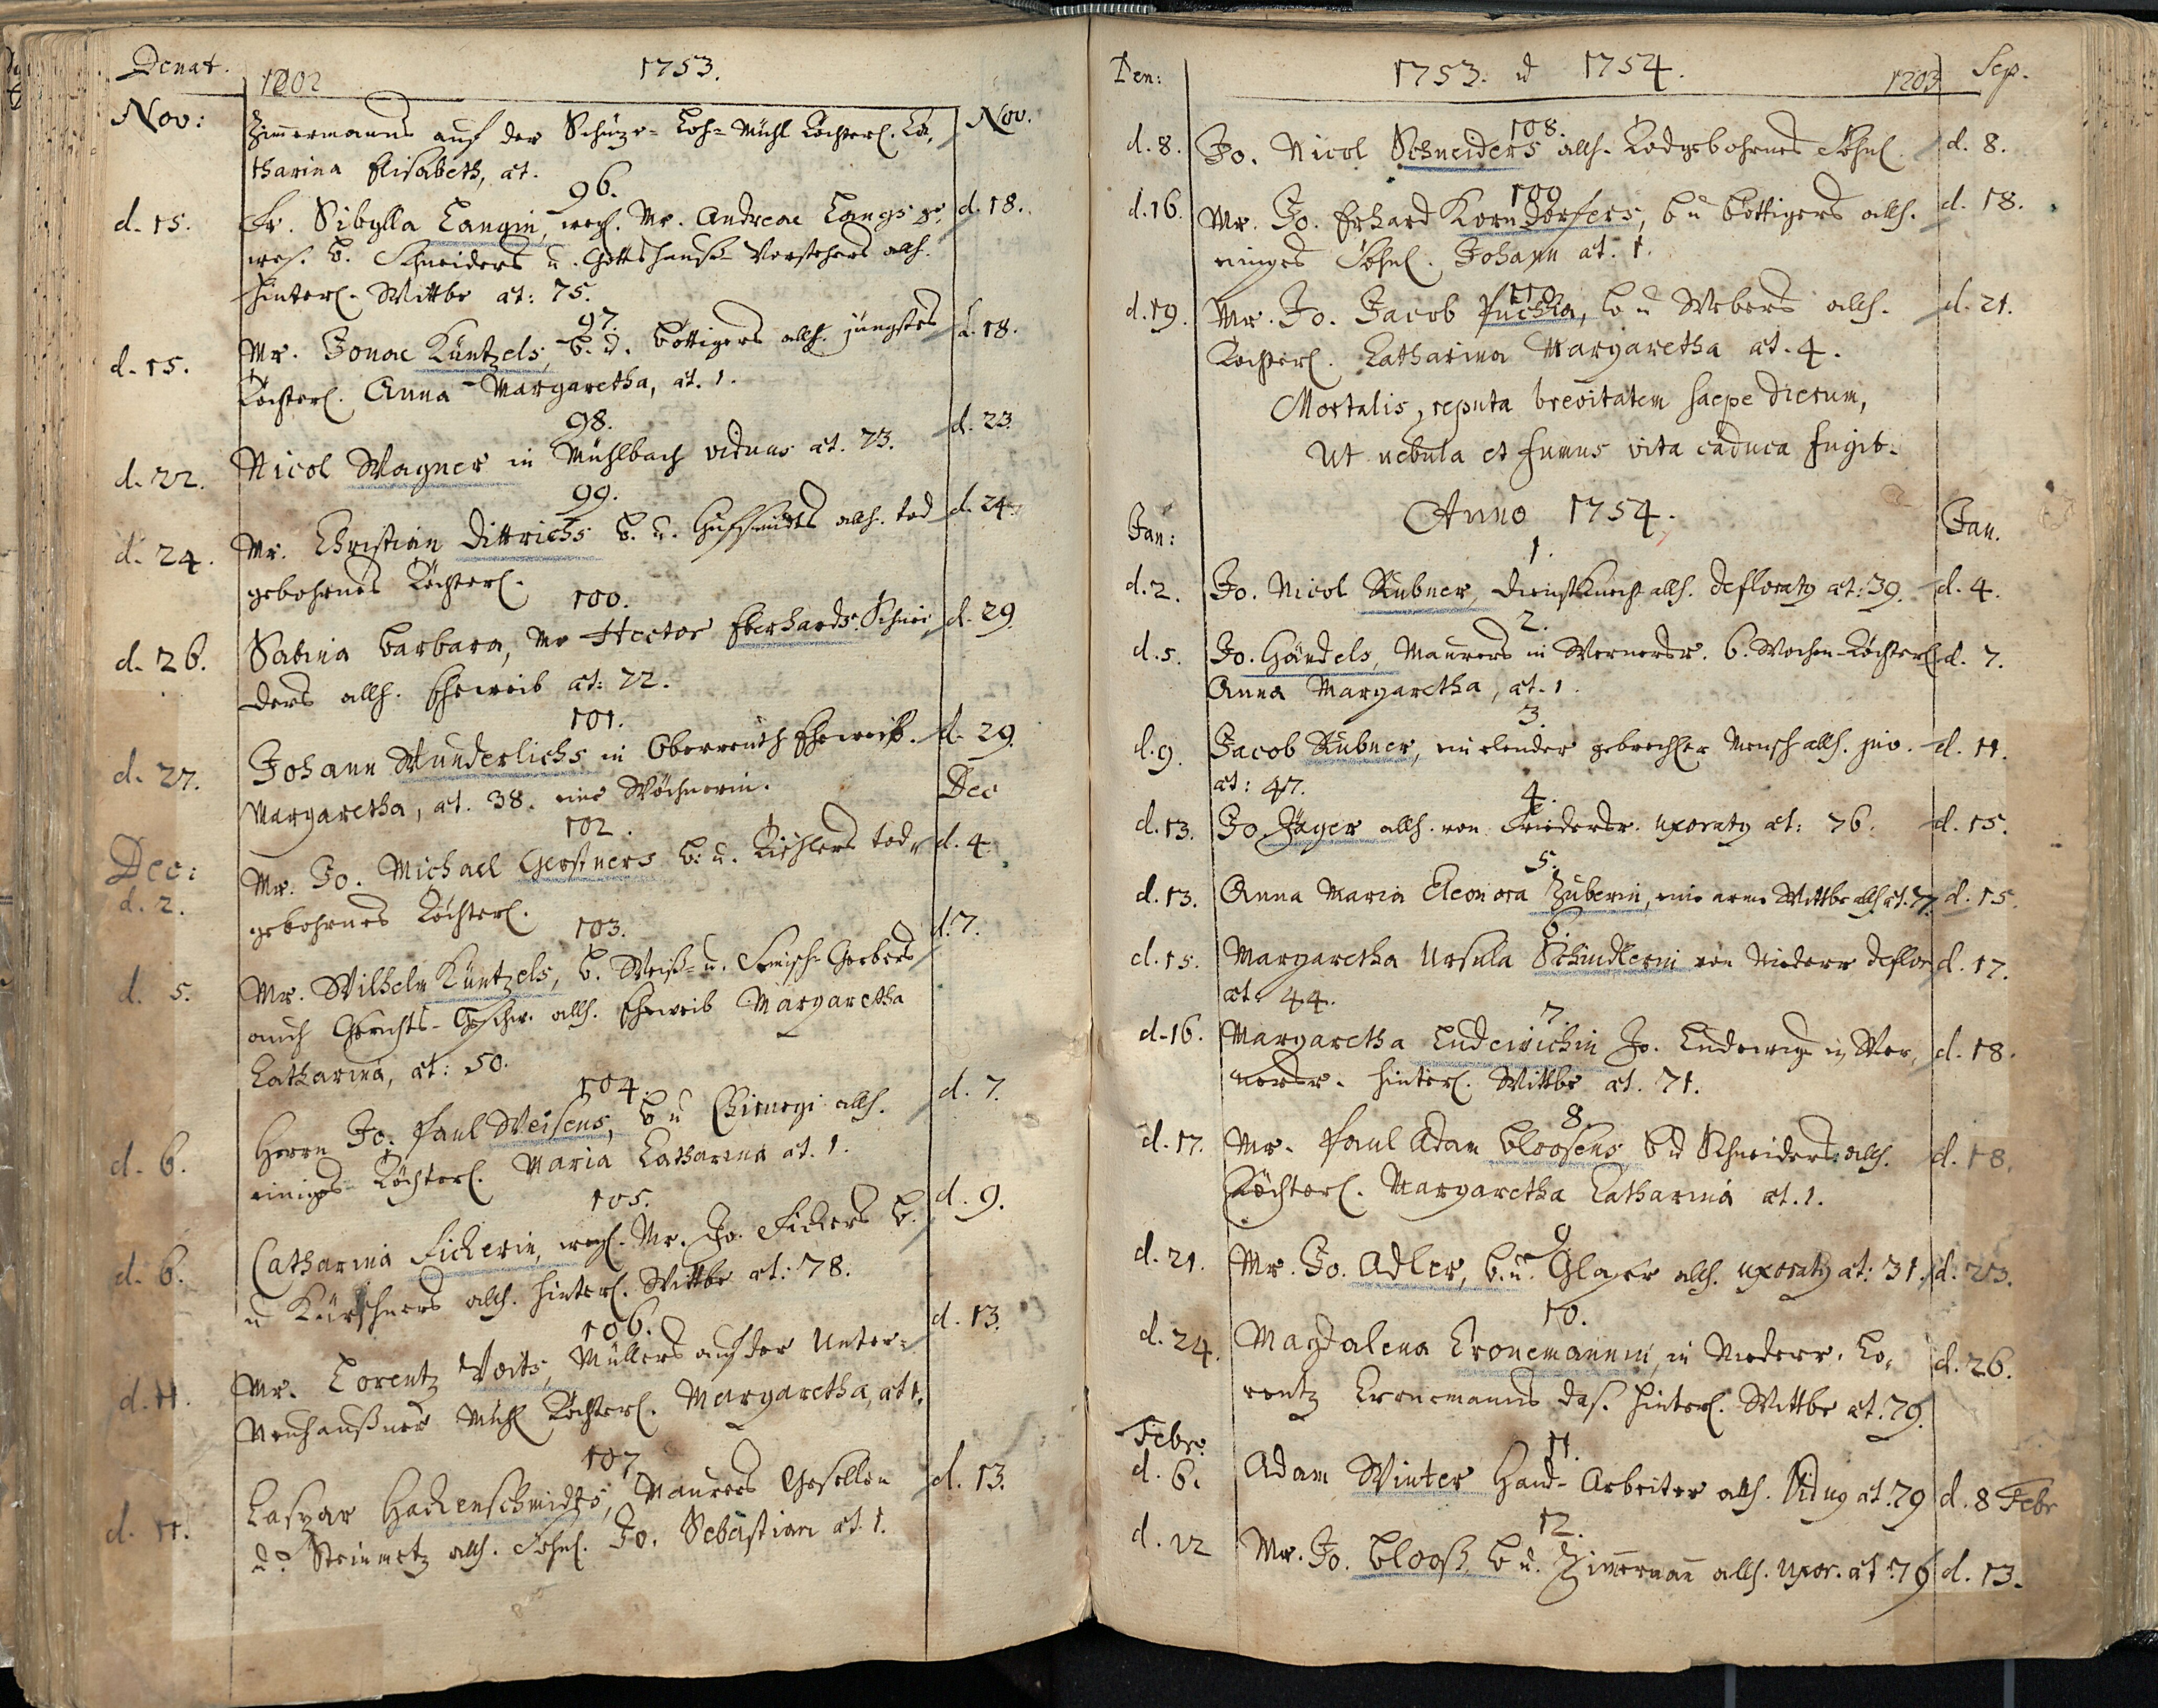 Denat. 1202 1753.
Nov: Zimmermanns auf der Schüze- Loh- Mühl Töchterl. Ca, Nov.
tharina Elisabeth, æt.
96.
d. 15. Fr. Sibylla Langin, weyl. Mr. Andreae Langs d. 18.
wes. B. Schneiders u. Gottshauß- Vorstehers allh.
hinterl. Wittbe æt: 75.
97.
d. 15. Mr. Jonae Küntzels, B. u. Böttigers allh. jüngstes d. 18.
Töchterl. Anna Margaretha, æt. 1.
98.
d. 22. Nicol Wagner in Mühlbach viduus æt. 73. d. 23.
99.
d. 24. Mr. Christian Dittrichs B. u. Huffschmidts allh. tod d. 24.
gebohrnes Töchterl.
100.
d. 26. Sabina Barbara, Mr Hector Eberhards Schnei d. 29.
ders allh. Eheweib æt: 22.
101.
d. 27. Johann Wunderlichs in Oberreuth Eheweib. d. 29.
Margaretha, æt. 38. eine Wöchnerin. Dec
102.
Dec: d. 2. Mr. Jo. Michael Gerstners B. u. Tischlers tod, d. 4.
gebohrnes Töchterl.
103.
d. 5. Mr. Wilhelm Küntzels, B. Weiß- u. Semisch- Gerbers d. 7.
auch Gerichts- Geschw. allh. Eheweib Margaretha
Catharina, æt: 50.
104.
d. 6. Herrn Jo. Paul Weisens, B u Chirurgi allh. d. 7.
einiges Töchterl. Maria Catharina æt. 1.
105.
d. 6. Catharina Fickerin, weyl. Mr. Jo. Fickers B. d. 9.
u Kürschners allh. hinterl. Wittbe æt: 78.
106.
d. 11. Mr. Lorentz Voits, Müllers auf der Unter- d. 13.
Neuhaußner Mühl Töchterl. Margaretha, æt 1.
107
d. 11. Caspar Hackenschmidts, Maurers Gesellen d. 13.
u. Steinmetz allh. Söhnl. Jo. Sebastian æt. 1.
Den: 1753. u 1754. 1203 Sep.
108.
d. 8. Jo. Nicol Schneiders allh. Todgebohrnes Söhnl. d. 8.
109
d. 16. Mr. Jo. Erhard Korndörfers, B u Böttigers allh. d. 18.
einiges Söhnl. Johann æt. 1.
110
d. 19. Mr. Jo. Jacob Puchta, B u Webers allh. d. 21.
Töchterl. Catharina Margaretha æt. 4.
Mortalis, reputa brevitatem saepe dierum,
Ut nebula et fumus vita caduca fugit.
Anno 1754.
Jan: Jan.
1.
d. 2. Jo. Nicol Kubner, Dienstknecht allh. deflorat9 æt: 39. d. 4.
2.
d. 5. Jo. Händels, Maurers in Wernersr. 6. Wochen- Töchterl d. 7.
Anna Margaretha, æt. 1.
3.
d. 9. Jacob Kubner, ein elender gebrechl. Mensch allh. juv. d. 11.
æt: 47.
4.
d. 13. Jo. Jäger allh. von Friedersr. uxorat9 æt: 76. d. 15.
5.
d. 13. Anna Maria Eleonora Zuberin, eine arme Wittbe allh. æt. 77. d. 15.
6.
d. 15. Margaretha Ursula Schindlerin von Niederr deflor d. 17.
æt. 44.
7.
d. 16. Margaretha Ludewichin Jo. Ludewigs in Wer, d. 18.
nersr. hinterl. Wittbe æt. 71.
8.
d. 17. Mr. Paul Adam Bloosens B u Schneiders allh. d. 18.
Töchterl. Margaretha Catharina æt. 1.
9
d. 21. Mr. Jo. Adler, B. u. Glaser allh. uxorat9 æt: 31. d. 23.
10.
d. 24. Magdalena Cronemannin, in Niederr. Lo, d. 26.
rentz Cronemanns das. hinterl. Wittbe æt. 79.
Febr.
11.
d. 6. Adam Winter Hand- Arbeiter allh. Vidu9 æt. 79 d. 8 Febr
12.
d. 12 Mr. Jo. Blooß, B u. Zimerman allh. uxor. æt. 76 d. 13.